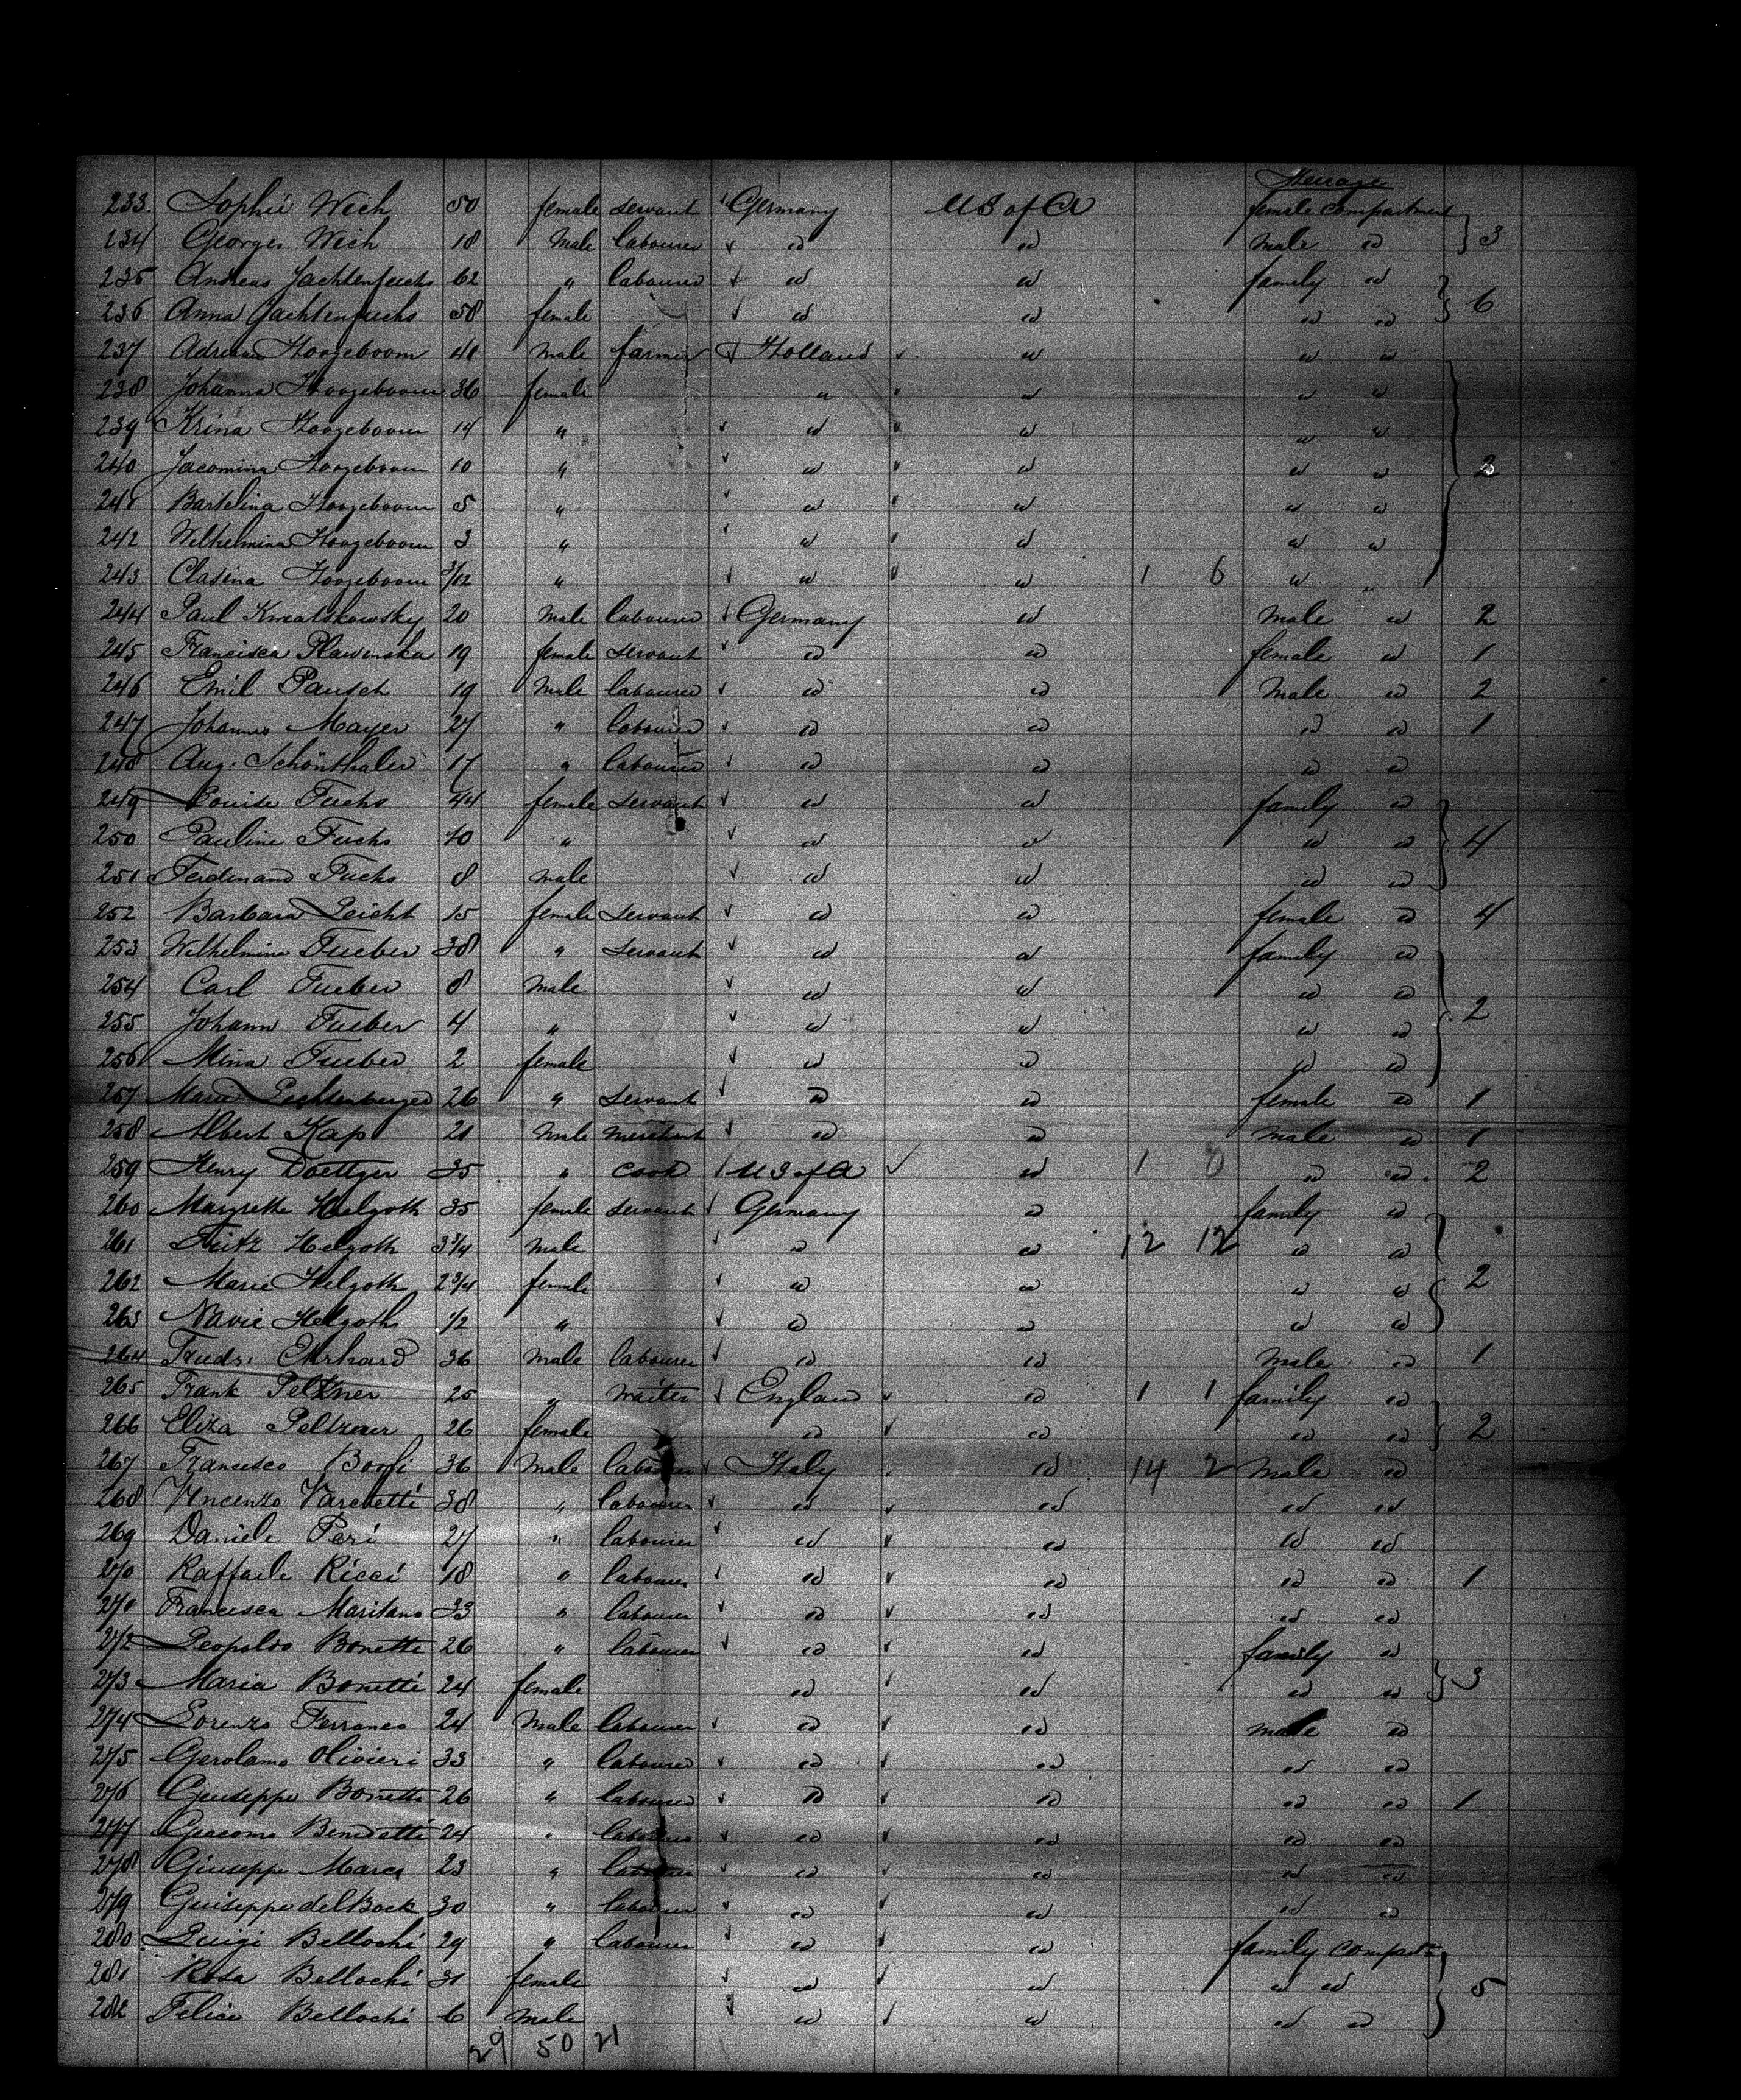 Steerage
233. Sophie Weih 50 female servant Germany U S of A female compartment
234 Georges Weih 18 Male labourer id id male id 3
235 Andreas Jachtenfuchs 62 " labourer id id family id
236 Anna Jachtenfuchs 58 female id id id id 6
237 Adrian Hoogeboom 41 Male farmer Holland id id id
238 Johanna Hoogeboom 36 female " id id id
239 Krina Hoogeboom 14 " id id id id
240 Jacomina Hoogeboom 10 " id id id id 2
241 Bartelina Hoogeboom 5 " id id id id
242 Wilhelmina Hoogeboom 3 " id id id id
243 Clasina Hoogeboom 3/12 " id id 1 6 id "
244 Paul Kwiatskowsky 20 Male labourer Germany id Male id 2
245 Francisca Plawenska 19 female servant id id female id 1
246 Emil Pausch 19 Male labourer id id Male id 2
247 Johannes Mayer 27 " labourer id id id id 1
248 Aug. Schönthaler 17 " labourer id id id id
249 Louise Fuchs 44 female servant id id family id
250 Pauline Fuchs 10 " id id id id 4
251 Ferdinand Fuchs 8 male id id id id
252 Barbara Leicht 15 female servant id id female id 4
253 Wilhelmine Tueber 38 " servant id id family id
254 Carl Tueber 8 Male id id id id
255 Johann Tueber 4 " id id id id 2
256 Mina Tueber 2 female id id id id
257 Maria Lechtenberger 26 " servant id id female id 1
258 Albert Kap 21 Male merchant id id male id 1
259 Henry Doettger 35 " cook U S of A id 1 0 id id 2
260 Margrethe Helgoth 35 female servant Germany id family id
261 Fritz Helgoth 3 3/4 Male id id 12 12 id id
262 Marie Helgoth 2 3/4 female id id id id 2
263 Navie Helgoth 1/2 " id id id id
264 Fredr. Ehrhard 36 Male labourer id id Male id 1
265 Frank Peltzner 25 " waiter England id 1 1 family id
266 Eliza Peltzner 26 female id id id id 2
267 Francesco Borfi 36 Male labourer Italy id 14 2 Male id
268 Vincenzo Varchetti 38 " labourer id id id id
269 Daniele Peri 27 " labourer id id id id
270 Raffaele Ricci 18 " labourer id id id id 1
271 Francesca Maritano 33 " labourer id id id id
272 Leopoldo Bonetti 26 " labourer id id family id
273 Maria Bonetti 24 female id id id id 3
274 Lorenzo Ferraneo 24 Male labourer id id male id
275 Gerolamo Olivieri 33 " labourer id id id id
276 Giuseppe Bonetti 26 " labourer id id id id 1
277 Giacomo Benedetti 24 " labourer id id id id
278 Giuseppe Marca 23 " labourer id id id id
279 Guiseppe del Bock 30 " labourer id id id id
280. Luigi Bellochi 29 " labourer id id family compt
281 Rosa Bellochi 31 female id id id id 5
282 Felice Bellochi 6 Male id id id id
29 50 21